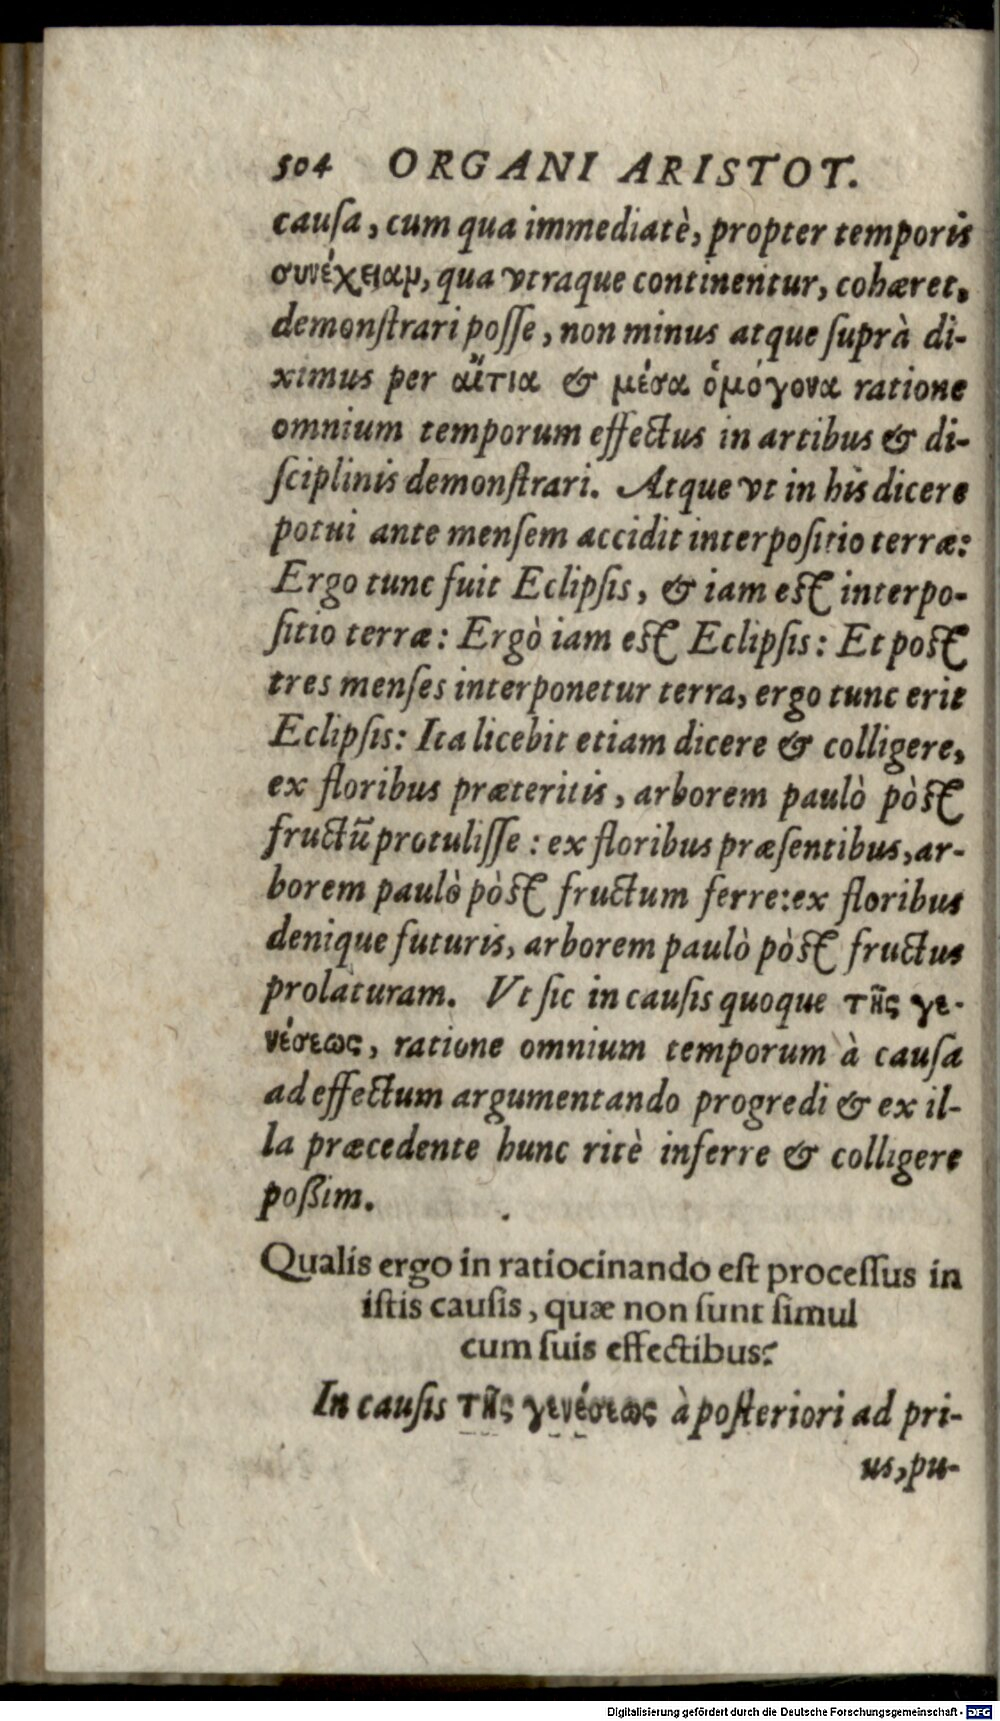 504 ORGANI ARISTOT.
cauſa, cum qua immediatè, propter temporis
συνέχειαμ, qua vtraque continentur, cohæret,
demonſtrari poſſe, non minus atque ſuprà di-
ximus per αἴτια & μέσα ὁμόγονα ratione
omnium temporum effectus in artibus & di-
ſciplinis demonſtrari. Atque vt in his dicere
potui ante menſem accidit interpoſitio terræ:
Ergo tunc fuit Eclipſis, & iam eſt interpo-
ſitio terræ: Ergò iam eſt Eclipſis: Et poſt
tres menſes interponetur terra, ergo tunc erit
Eclipſis: Ita licebit etiam dicere & colligere,
ex floribus præteritis, arborem paulò pòſt
fructū protuliſſe: ex floribus præſentibus, ar-
borem paulò pòſt fructum ferre: ex floribus
denique futuris, arborem paulò pòſt fructus
prolaturam. Vt ſic in cauſis quoque τῆς γε-
νέσεως, ratione omnium temporum à cauſa
ad effectum argumentando progredi & ex il-
la præcedente hunc ritè inferre & colligere
poßim.
Qualis ergo in ratiocinando eſt proceſſus in
iſtis cauſis, quæ non ſunt ſimul
cum ſuis effectibus?
In cauſis τῆς γενέσεως à poſteriori ad pri-
us, pu-
Digitalisierung gefördert durch die Deutsche Forschungsgemeinschaft - DFG